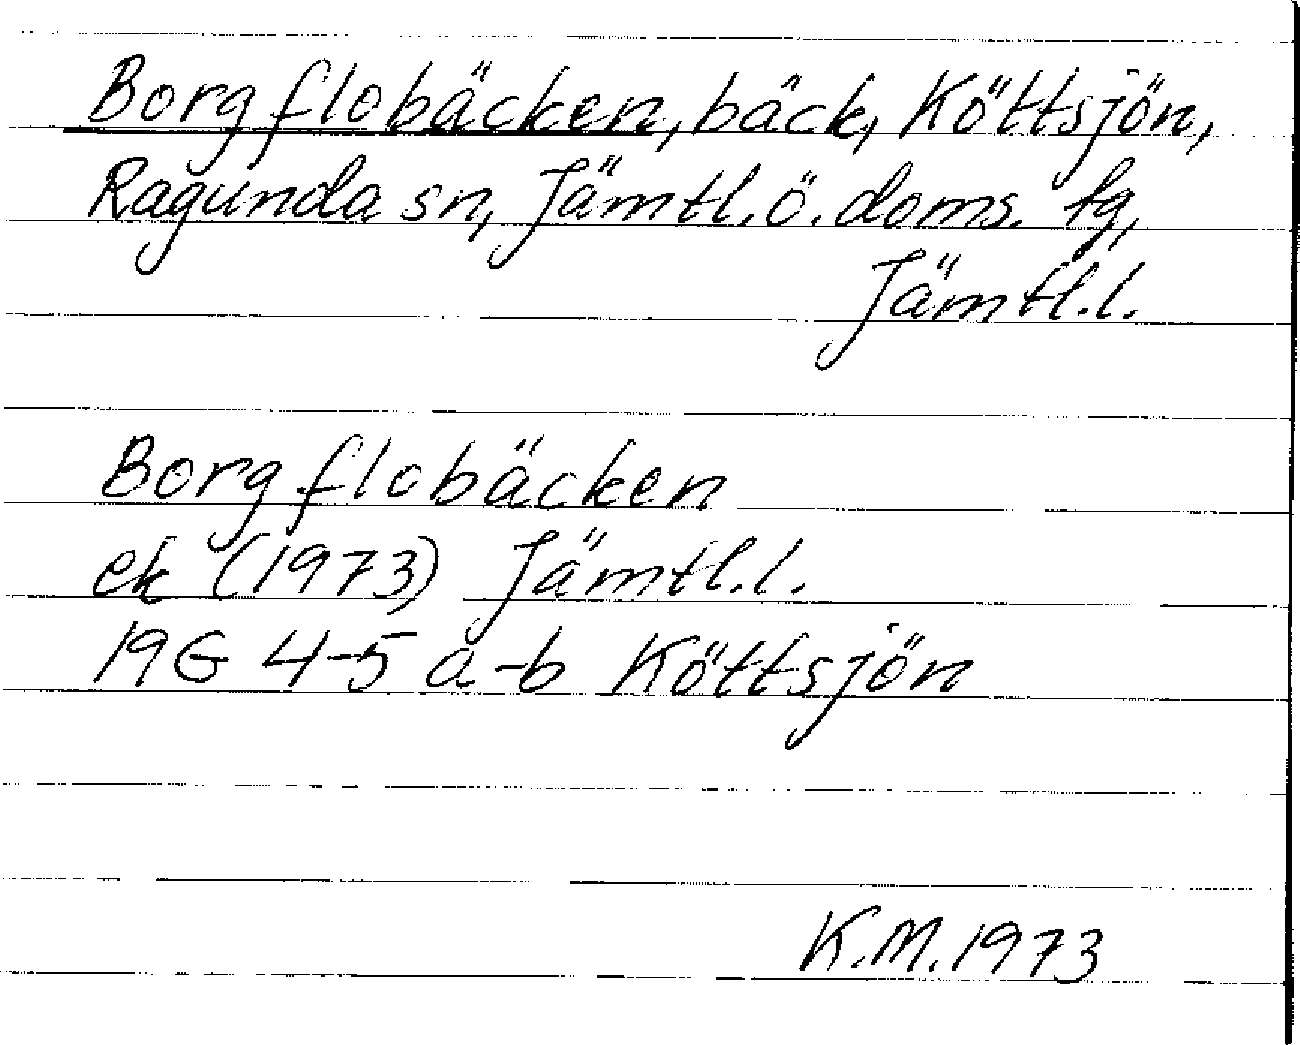 Borgflobäcken, bäck, Köttsjön,
Ragunda sn, Jämtl. ö. doms. tg,
Jämtl.l.
Borgflobäcken
ek (1973) Jämtl.l.
19G 4-5 a-b Köttsjön
K.M. 1973